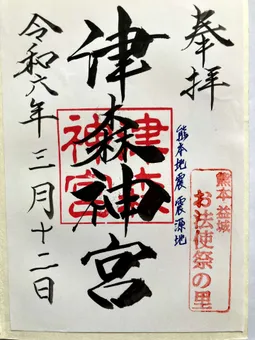 奉拝
熊本 益城
お法使祭の里
熊本地震 震源地
津森神宮
津森
神宮
令和六年三月十二日